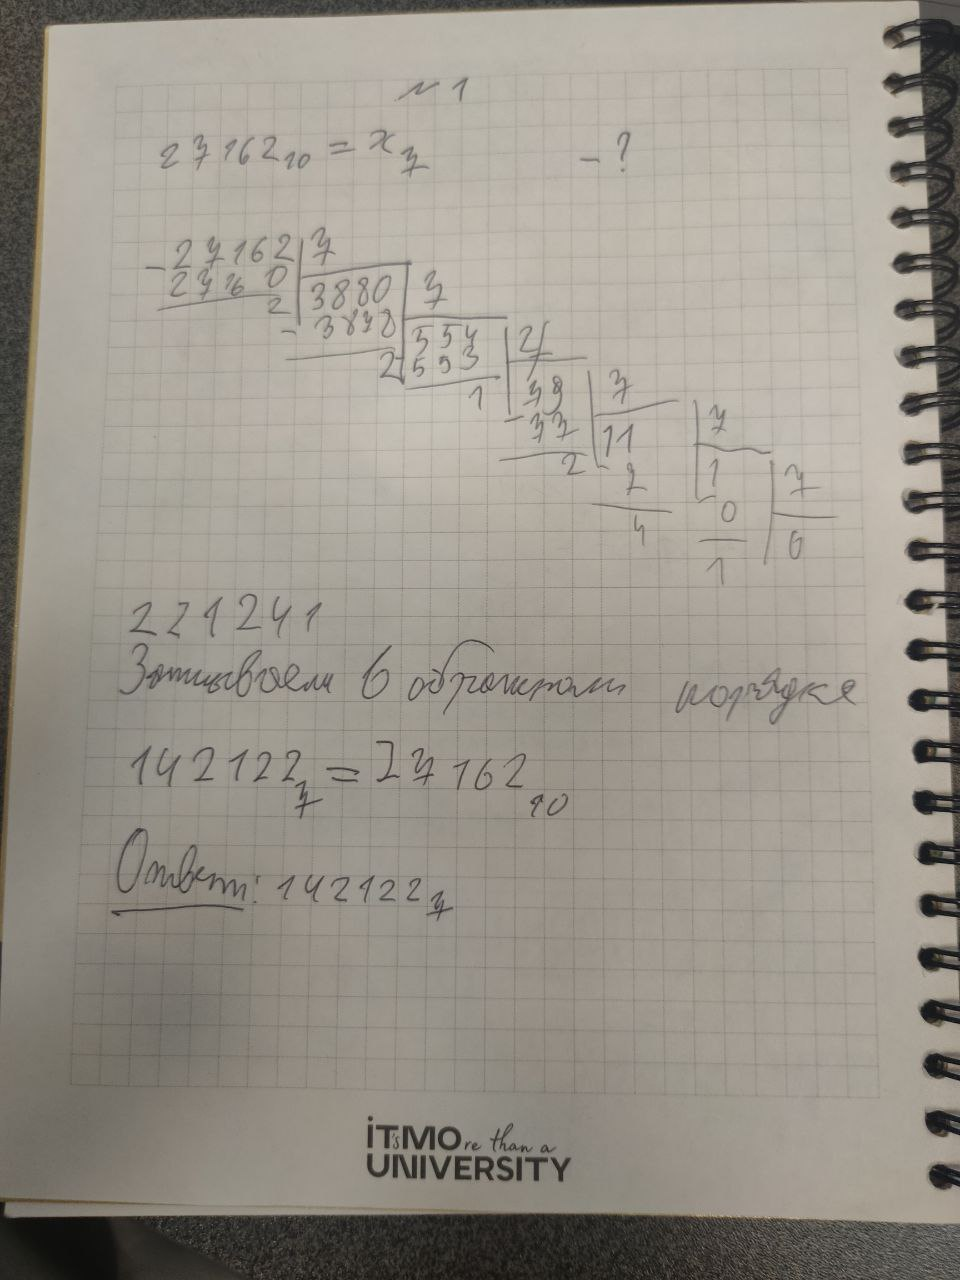 № 1
27162₁₀ = x₇ - ?
- 27162 | 7
27160 | 3880 | 7
2 - 3878 | 554 | 7
2 553 | 79 | 7
1 - 77 | 11 | 7
2 - 7 | 1 | 7
4 - 0 | 0
1
221241
Записываем в обратном порядке
142122₇ = 27162₁₀
Ответ: 142122₇
iT'sMOre than a
UNIVERSITY